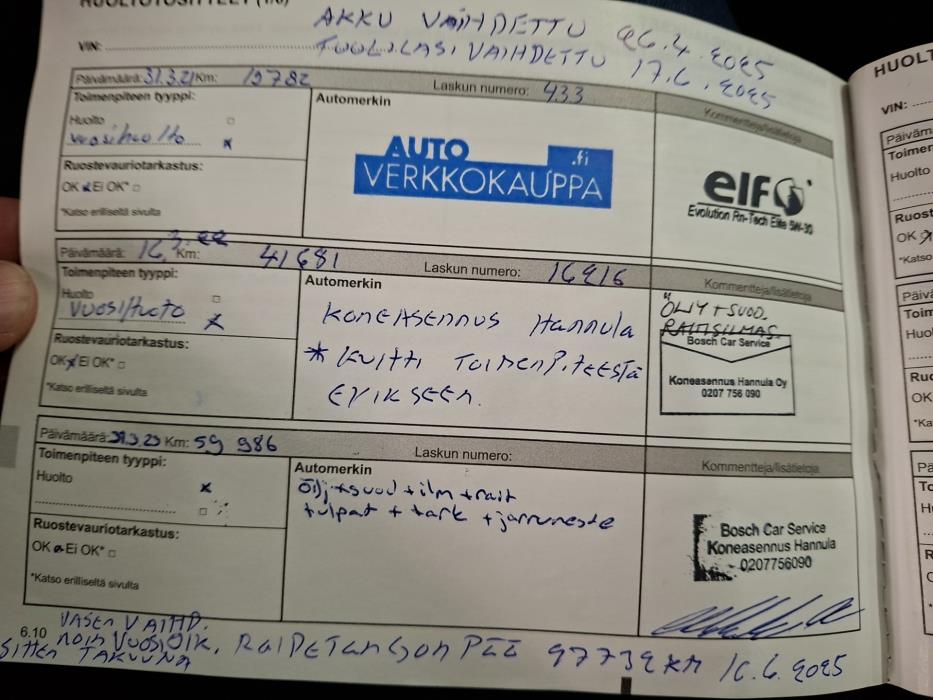 HUOLTOTOSITTEET (1/6)
AKKU VAIHDETTU 26.4.2025
VIN: TUULILASI VAIHDETTU 17.6.2025
Päivämäärä: 31.3.21 Km: 19782 Laskun numero: 433
Toimenpiteen tyyppi:
Automerkin
Kommentteja/lisätietoja
Huolto
vuosihuolto x
Ruostevauriotarkastus:
OK Ei OK*
*Katso erilliseltä sivulta
AUTO .fi
VERKKOKAUPPA
elf
Evolution Rn-Tech Elite 5W-30
Päivämäärä: Km: 41681 Laskun numero: 16216
Toimenpiteen tyyppi:
Automerkin
Kommentteja/lisätietoja
Huolto
Vuosihuolto x
Ruostevauriotarkastus:
OK x Ei OK*
*Katso erilliseltä sivulta
KONEASENNUS Hannula
* KUITTI TOIMENPITEESTÄ
ERIKSEEN.
ÖLJY + SUOD.
RAITISILMAS.
Bosch Car Service
Koneasennus Hannula Oy
0207 756 090
Päivämäärä: 31.3.23 Km: 59 986 Laskun numero:
Toimenpiteen tyyppi:
Automerkin
Kommentteja/lisätietoja
Huolto x
Ruostevauriotarkastus:
OK Ei OK*
*Katso erilliseltä sivulta
Öljy+suod+ilm+rait
tulpat + tark + jarruneste
Bosch Car Service
Koneasennus Hannula
0207756090
VASEN VAIHD.
6.10 NOIN VUOSI OIK. RAIDETANGON PÄÄ 97732 KM 16.6.2025
SITTEN TAKUUNA
HUOLT
VIN:
Päiväm
Toimen
Huolto
Ruost
OK
*Katso
Päivä
Toim
Huol
Ruo
OK
*Ka
Pä
To
H
R